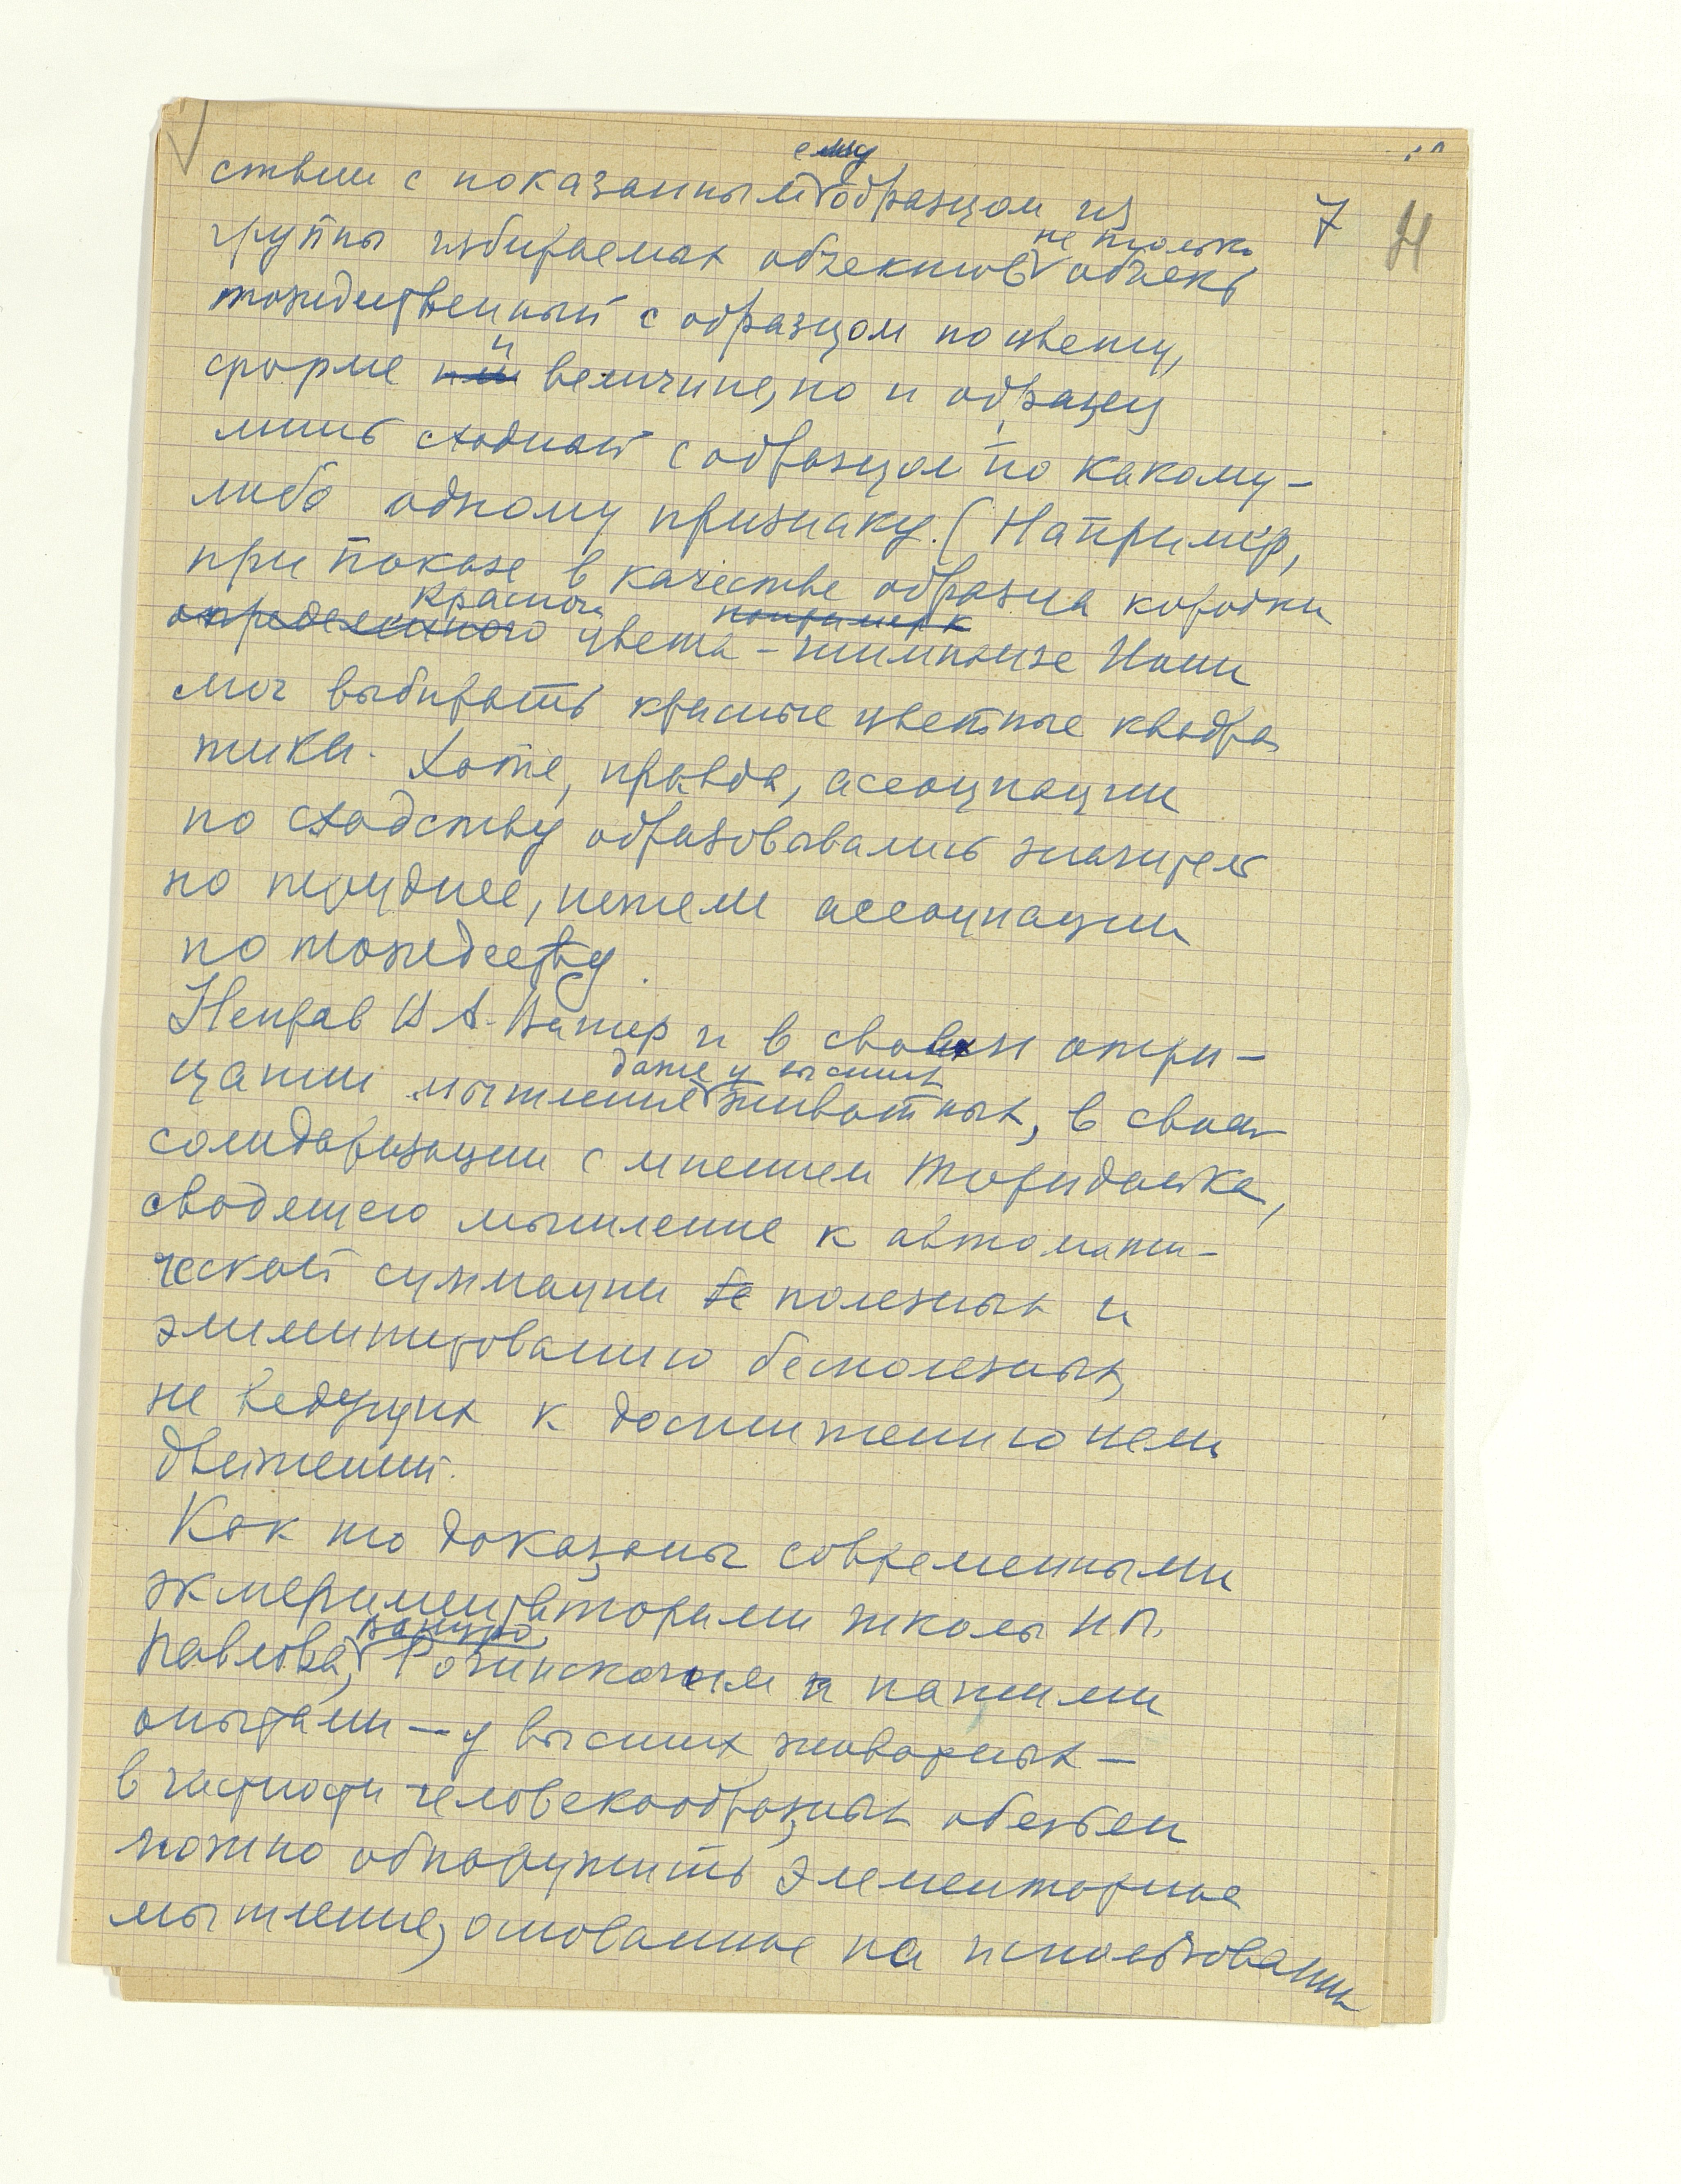 7
ему
ствии с показанным образцом из
не только
группы избираемых объектов объект
тождественный с образцом по цвету,
форме и величине, но и образец
лишь сходный с образцом по какому-
либо одному признаку. (Например,
при показе в качестве образца коробки
красного
определенного цвета - шимпанзе Иони
мог выбирать красные цветные квадра
тики. Хотя, правда, ассоциации
по сходству образовывались значитель
но труднее, нежели ассоциации
по тождеству.
Неправ В А. Вагнер и в своем отри-
даже у высших
цании мышления животных, в своей
солидаризации с мнением Торндайка,
сводящего мышление к автомати-
ческой суммации бе полезных и
элиминированию бесполезных,
не ведущих к достижению цели
движений.
Как то доказаны современными
экспериментаторами школы И П.
Вацуро,
Павлова, Рогинским и нашими
опытами — у высших животных —
в частности человекообразных обезьян
можно обнаружить элементарное
мышление, основанное на использовании